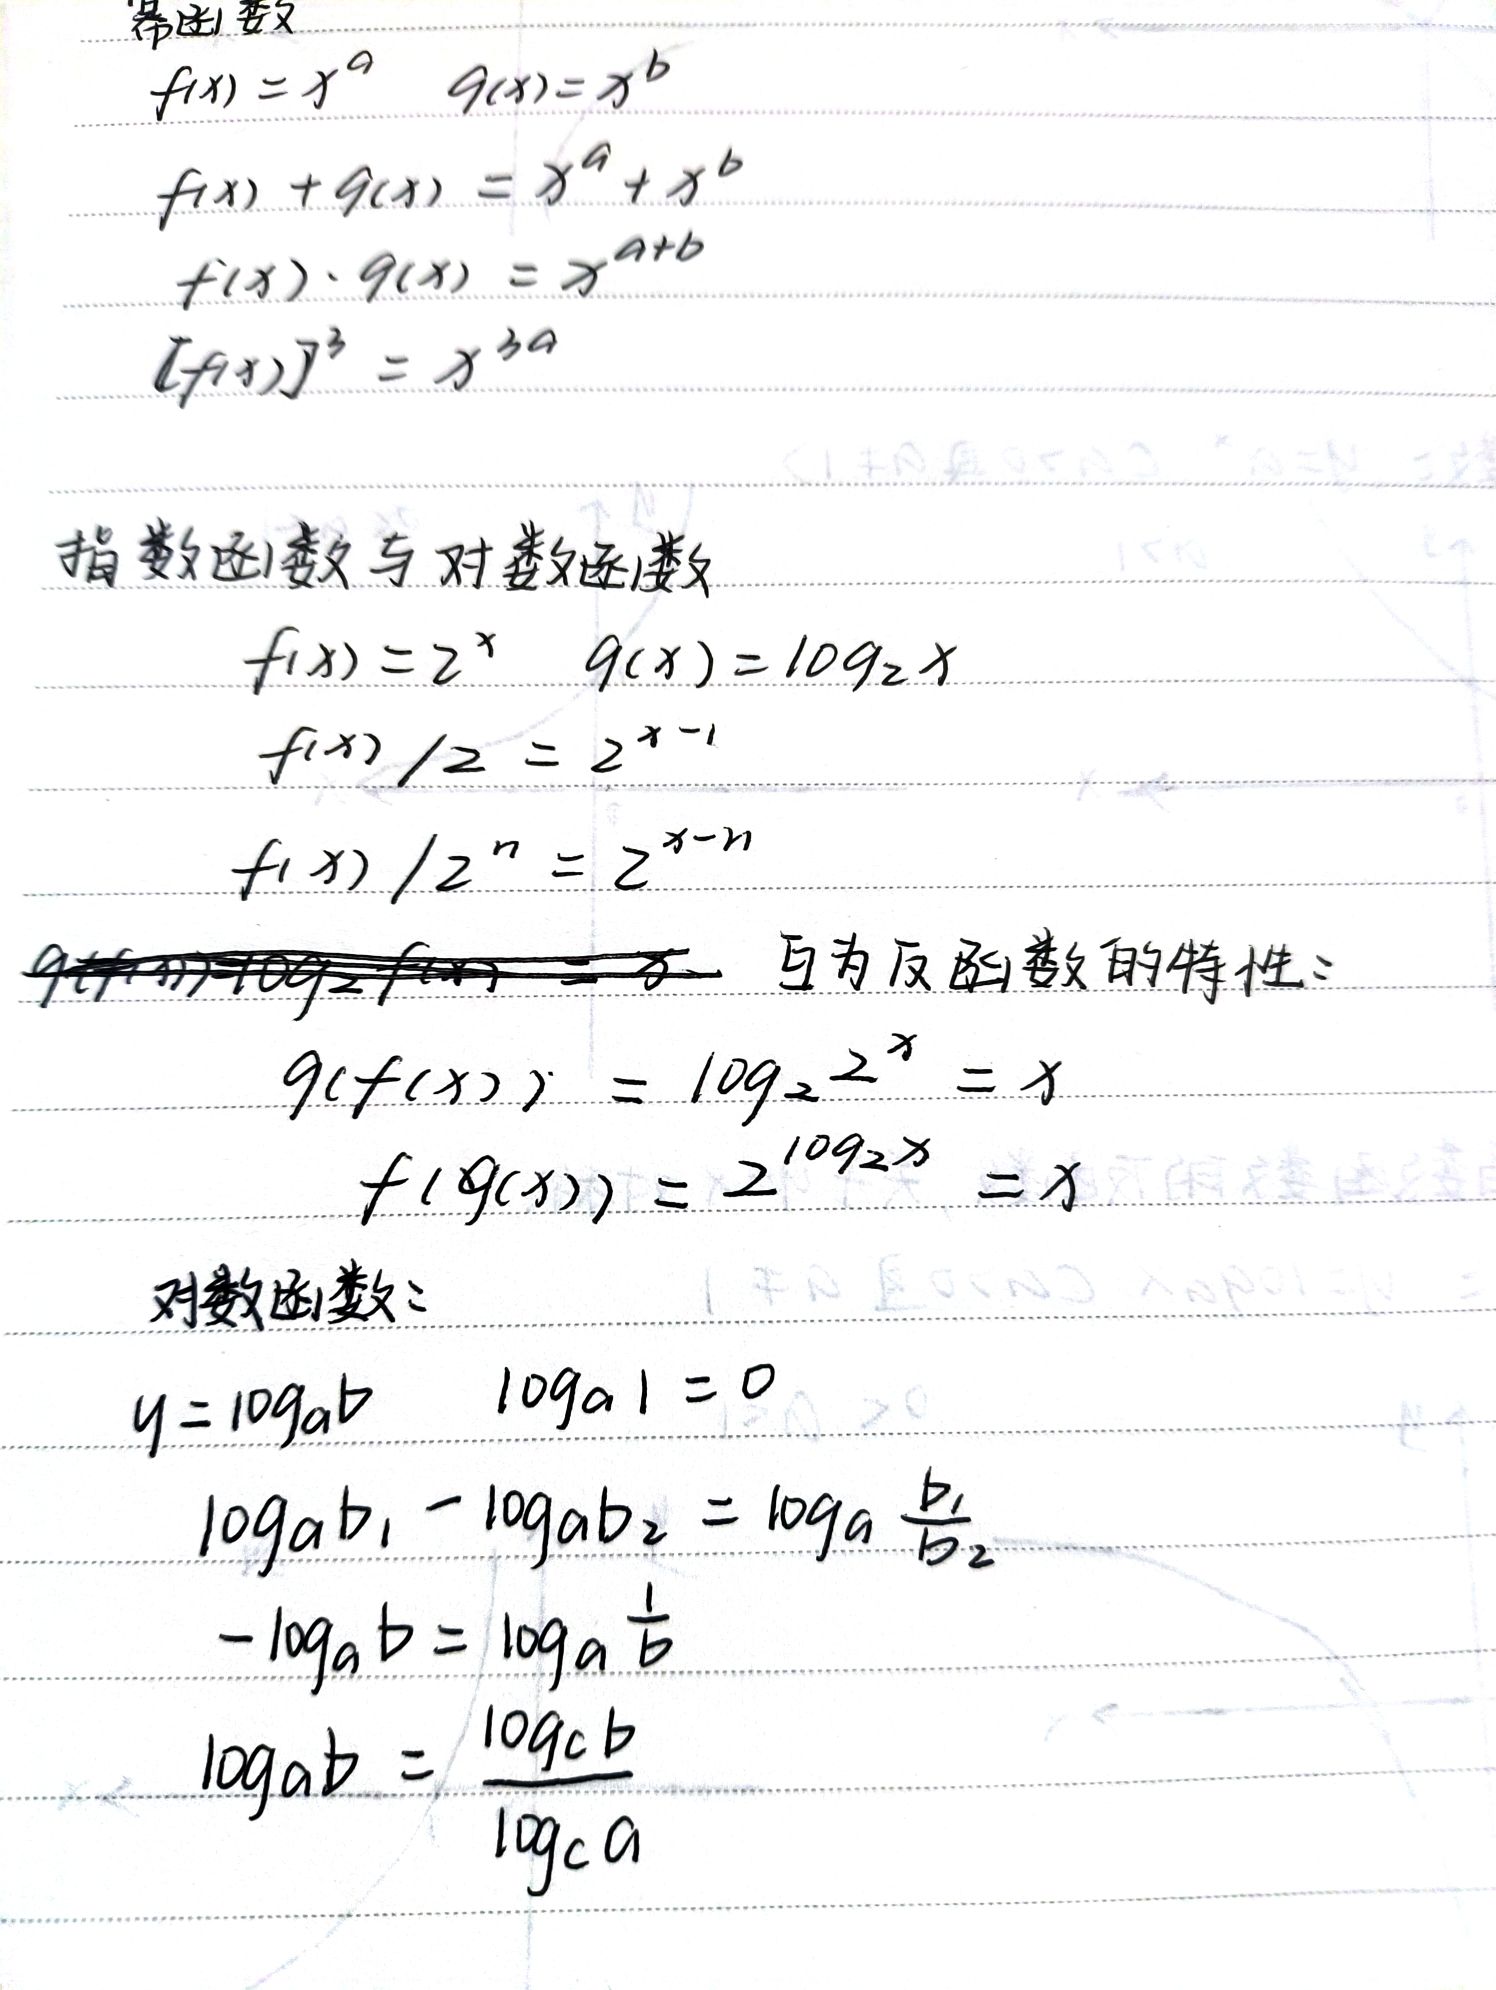 幂函数
f(x) = x^a   g(x) = x^b
f(x) + g(x) = x^a + x^b
f(x) · g(x) = x^{a+b}
[f(x)]^3 = x^{3a}
指数函数与对数函数
f(x) = 2^x   g(x) = log_2 x
f(x) / 2 = 2^{x-1}
f(x) / 2^n = 2^{x-n}
g(f(x)) = log_2 f(x) = x   互为反函数的特性:
g(f(x)) = log_2 2^x = x
f(g(x)) = 2^{log_2 x} = x
对数函数:
y = log_a b   log_a 1 = 0
log_a b_1 - log_a b_2 = log_a \frac{b_1}{b_2}
- log_a b = log_a \frac{1}{b}
log_a b = \frac{log_c b}{log_c a}